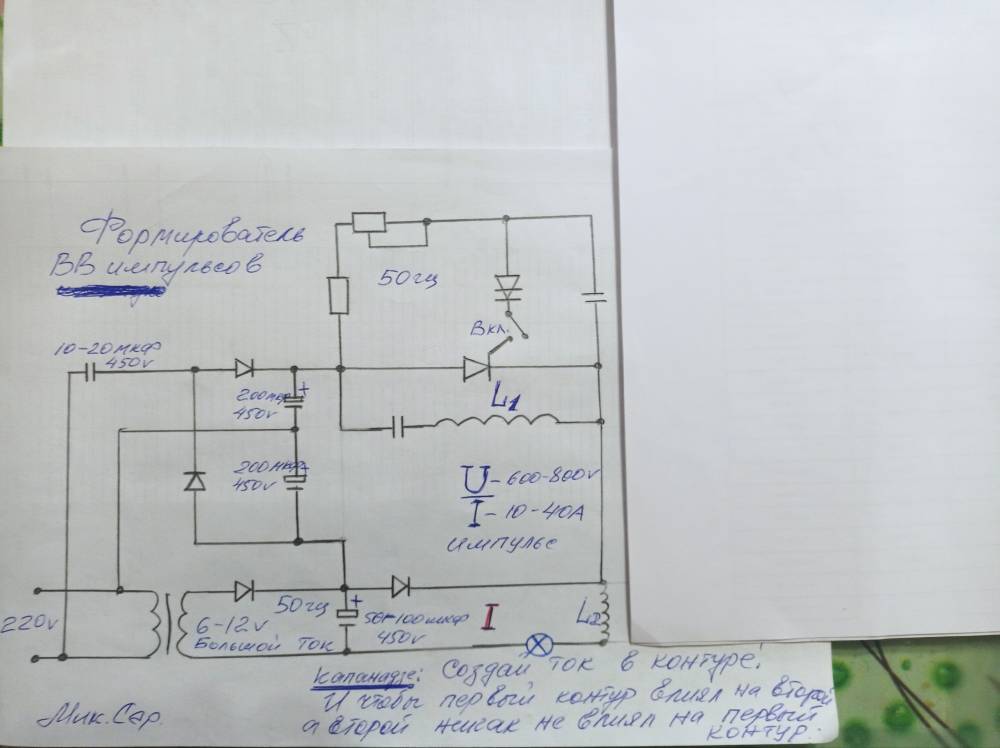 Формирователь
ВВ импульсов
50гц
Вкл.
10-20мкф
450v
L1
200мкф
450v
+
200мкф
450v
+
U - 600-800v
I - 10-40A
импульс
220v
6-12v
Большой ток
50гц
+
50-100мкф
450v
I
L2
Капанадзе: Создай ток в контуре!
И чтобы первый контур влиял на второй
а второй никак не влиял на первый
контур.
Мик. Сар.